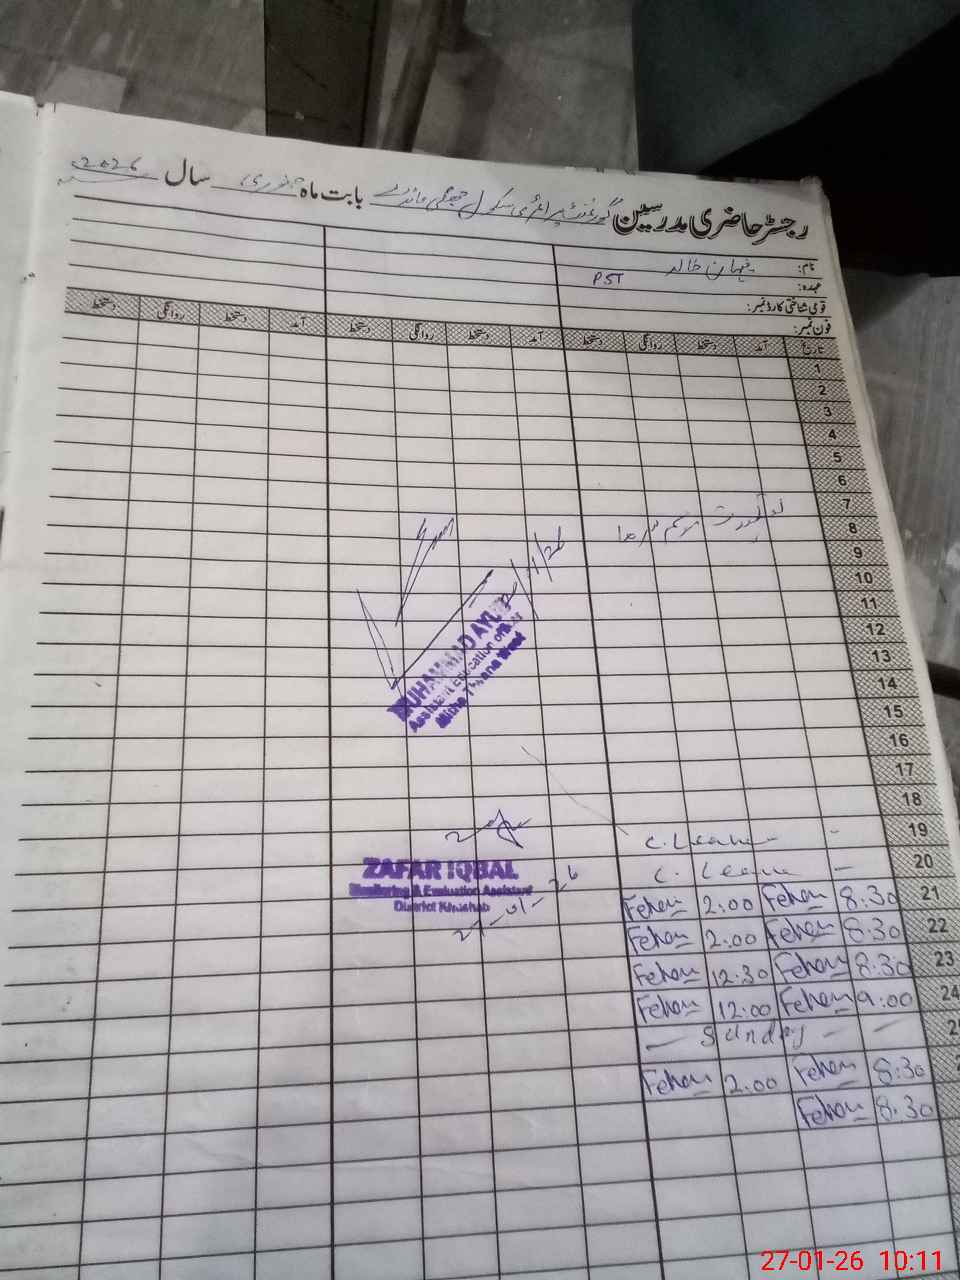 رجسٹر حاضری مدرسین گورنمنٹ پرائمری سکول بابت ماہ جنوری سال 2026
نام: فہان خالد
عہدہ: PST
قومی شناختی کارڈ نمبر:
فون نمبر:
تاریخ آمد دستخط روانگی دستخط آمد دستخط روانگی دستخط آمد دستخط روانگی دستخط
1
2
3
4
5
6
7
8 موسم سرما
9
10
11
12
13
14
15
16
17
18
19 C. Leave -
20 C. Leave -
21 8:30 Fehan 2:00 Fehan
22 8:30 Fehan 2:00 Fehan
23 8:30 Fehan 12:30 Fehan
24 9:00 Fehan 12:00 Fehan
- Sunday - -
8:30 Fehan 2:00 Fehan
8:30 Fehan
MUHAMMAD AYUB
Assistant Education Officer
Mitha Tiwana West
ZAFAR IQBAL
Monitoring & Evaluation Assistant
District Khushab
27-01-26
27-01-26 10:11